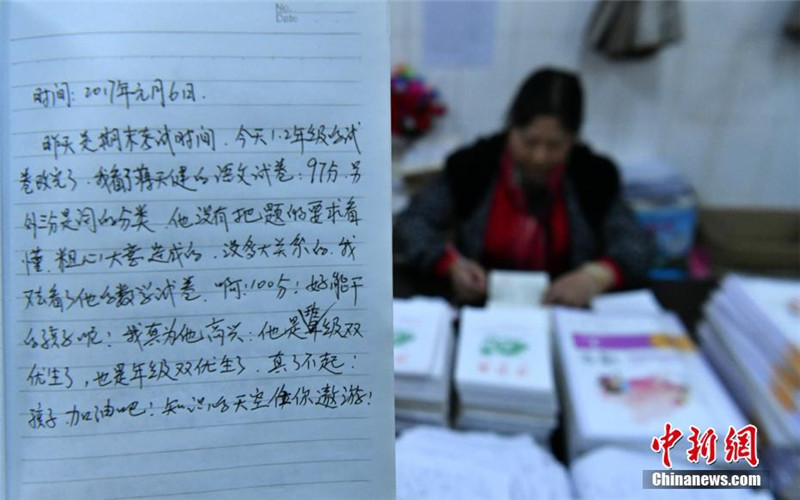 No.
Date
时间：2017年元月6日.
昨天是期末考试时间，今天1.2年级的试
卷改完了，我看了蒋天健的语文试卷：97分，另
外3分是词的分类，他没有把题的要求看
懂，粗心大意造成的，没多大关系的，我
又看了他的数学试卷，啊！100分！好能干
的孩子呢！我真为他高兴，他是年级双
优生了，也是年级双优生了，真了不起！
孩子，加油吧！知识的天空任你遨游！
中新网
Chinanews.com